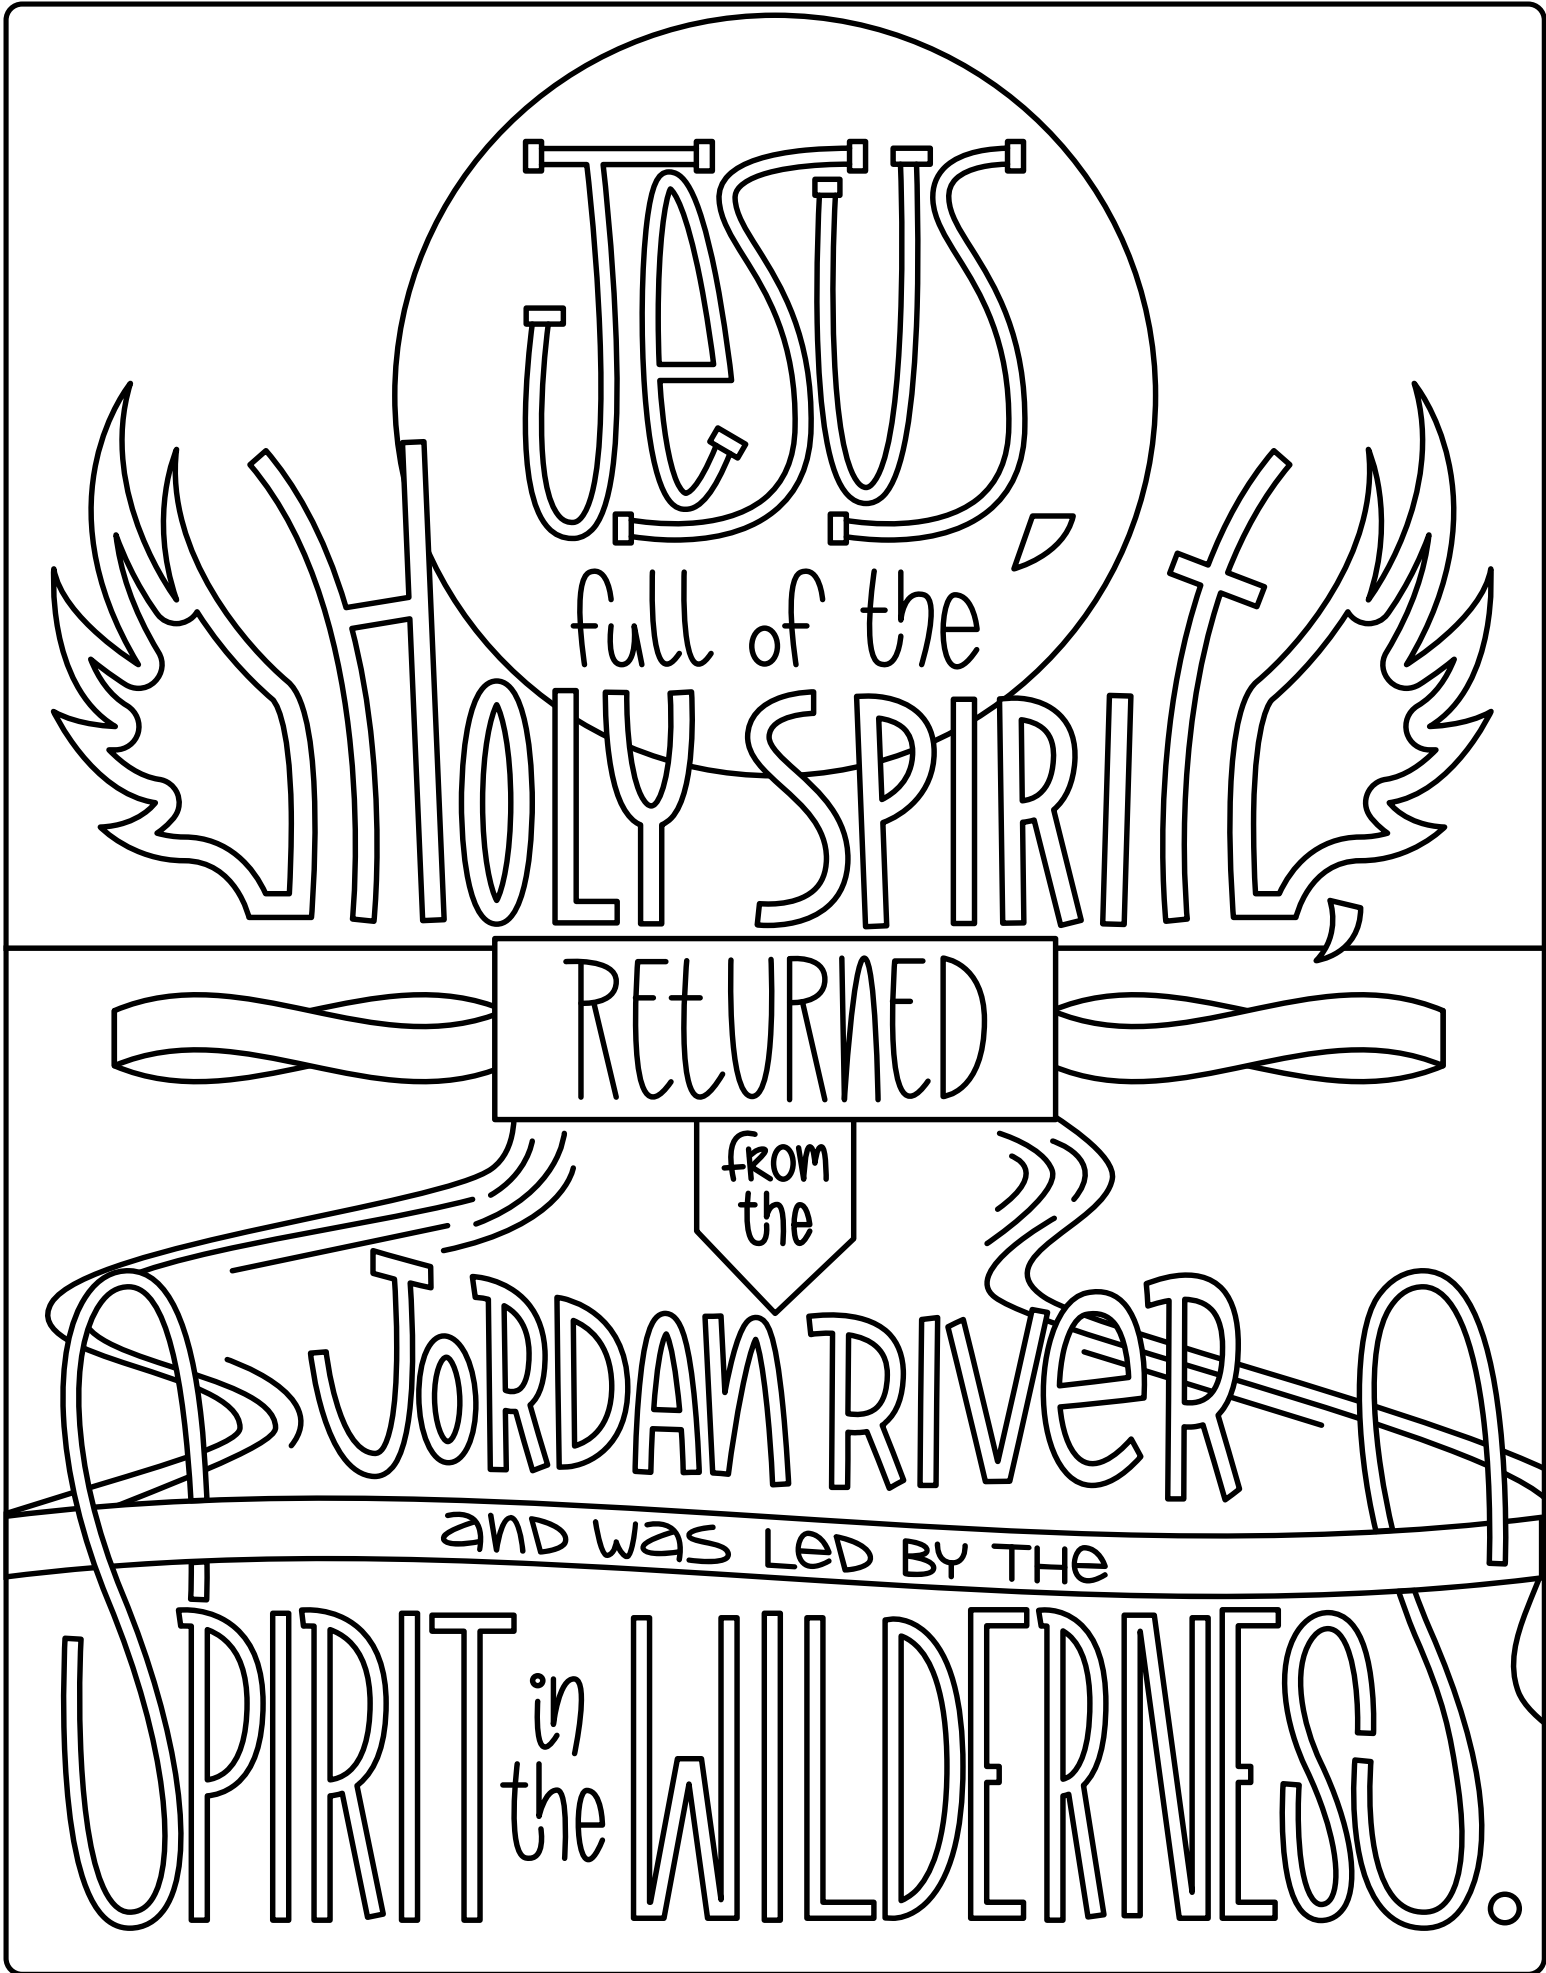 JeSUS,
full of the
HOLY SPIRIt,
RETURNED
from
the
JORDAN RIVeR
and was Led BY THe
SPIRIT in the WILDERNESS.